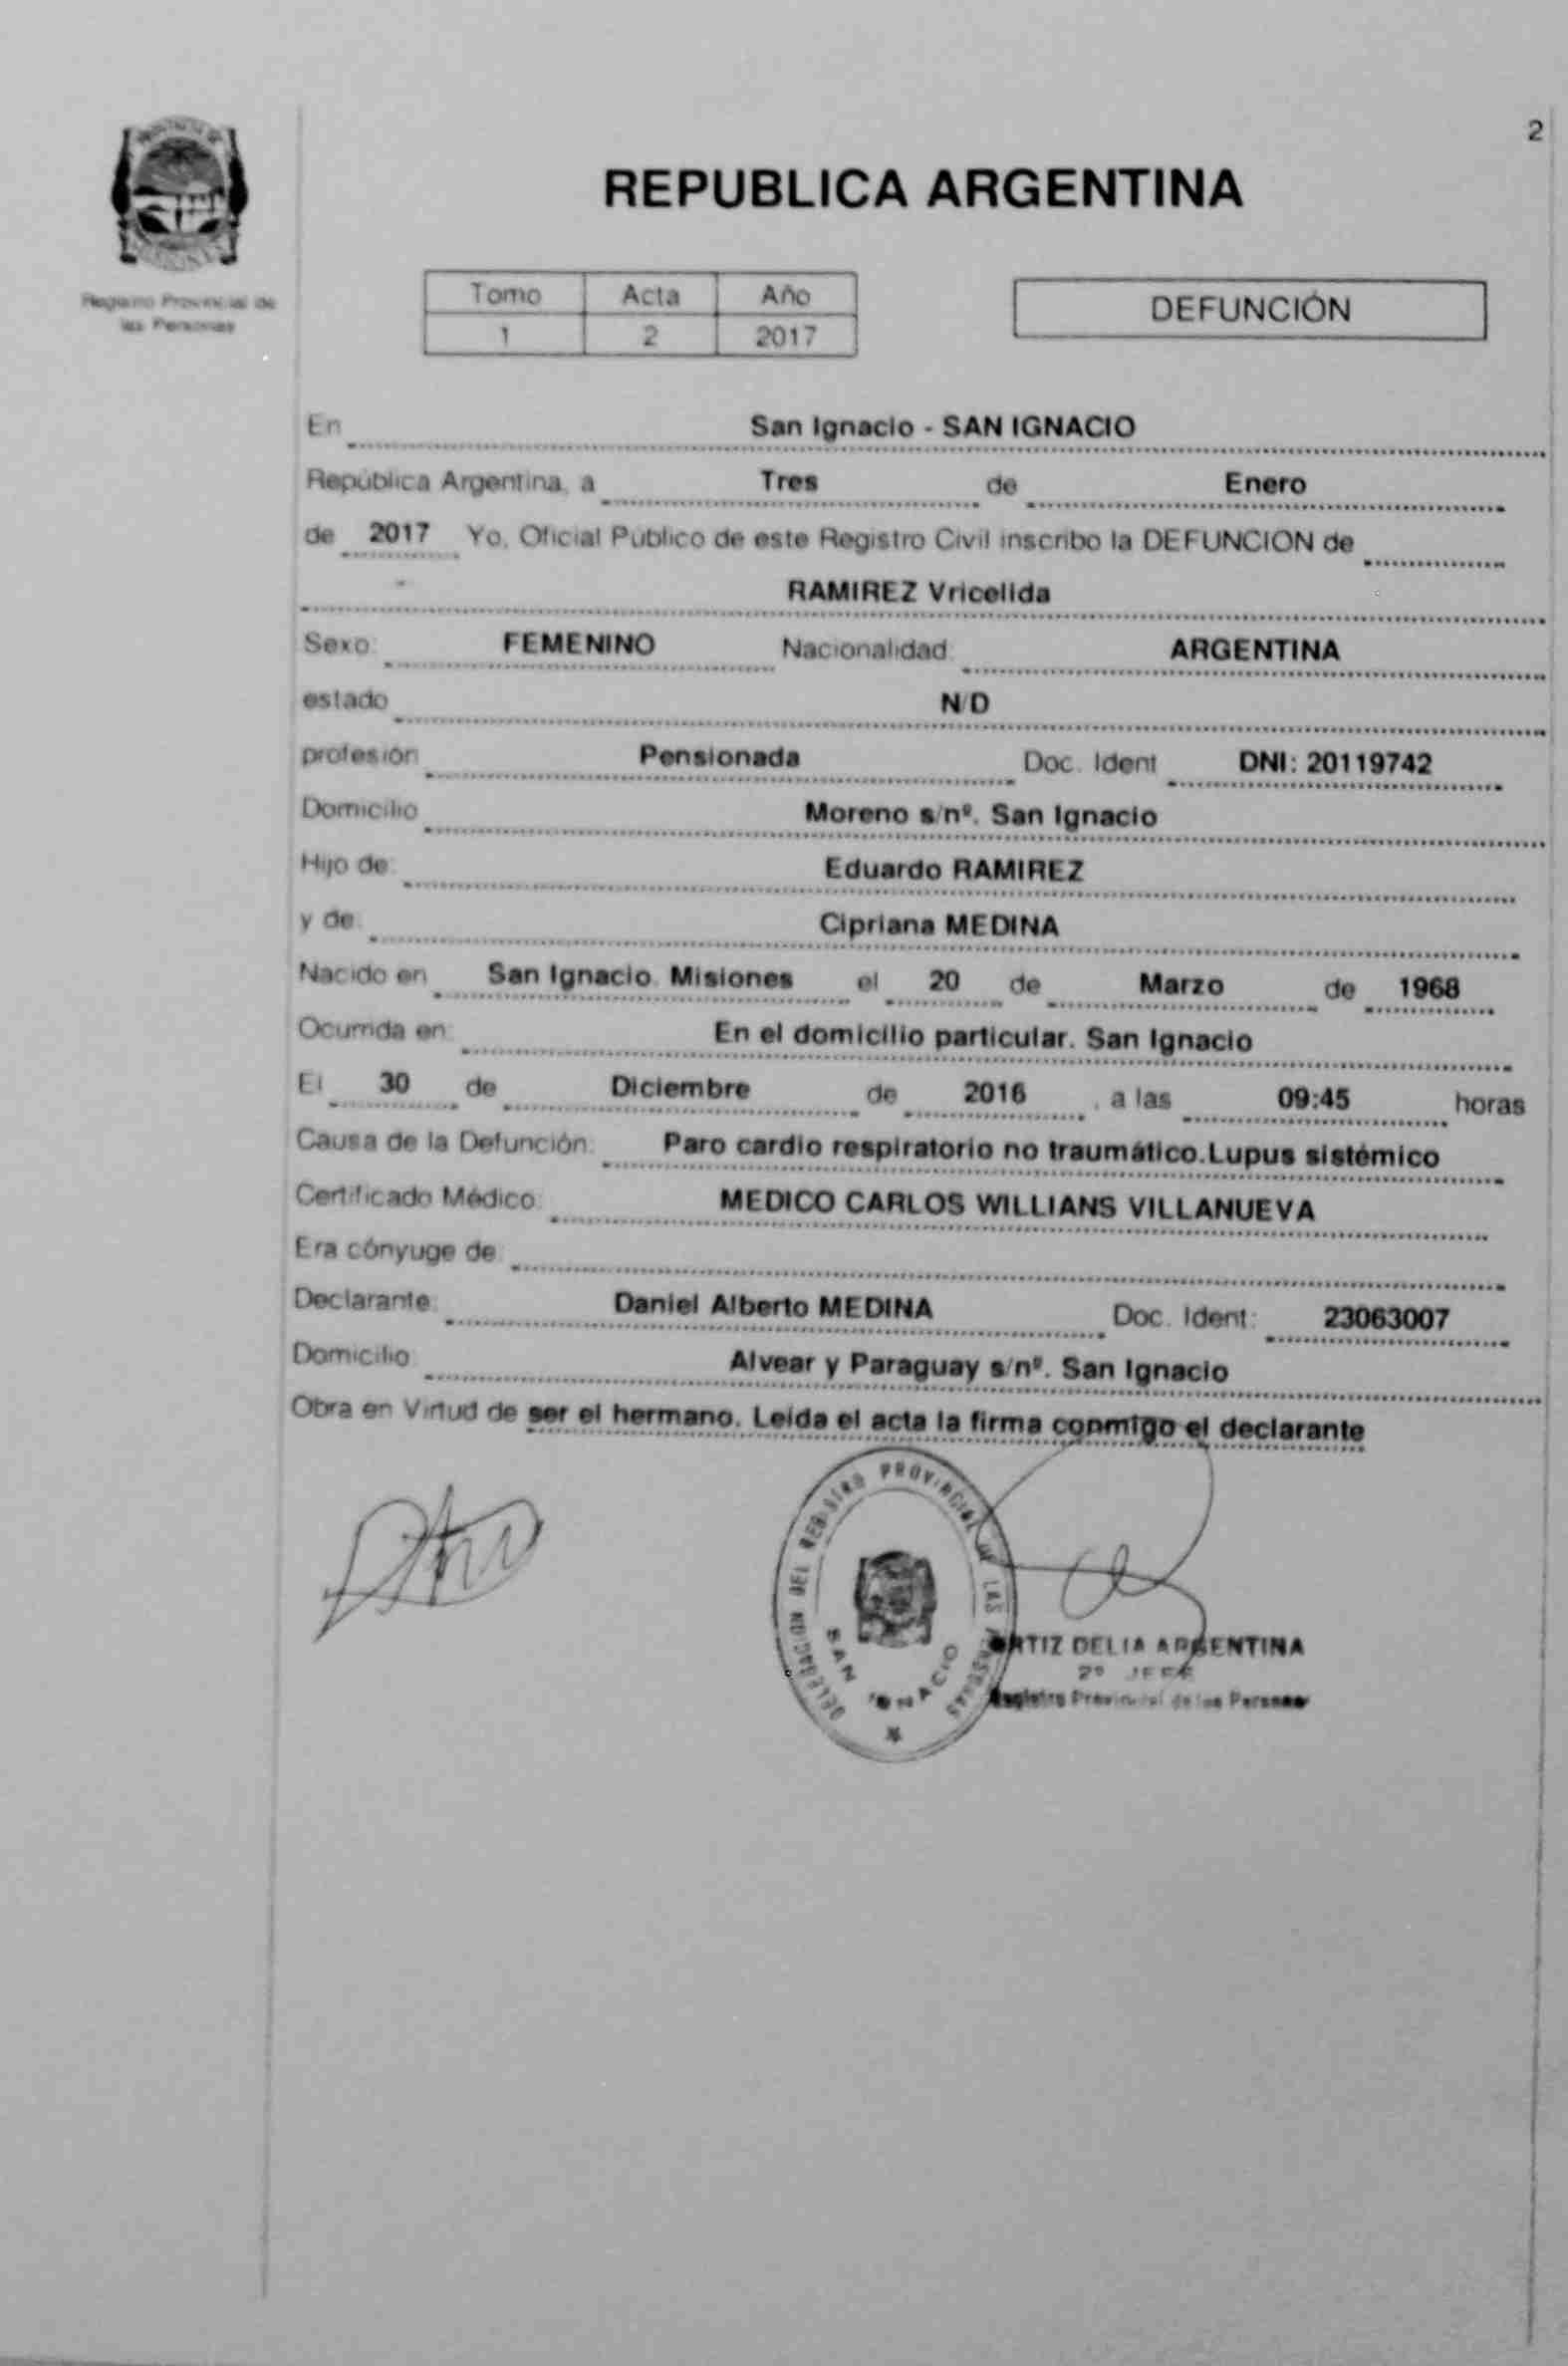 2
REPUBLICA ARGENTINA
Registro Provincial de
las Personas
Tomo Acta Año
1 2 2017
DEFUNCIÓN
En San Ignacio - SAN IGNACIO
República Argentina, a Tres de Enero
de 2017 Yo, Oficial Público de este Registro Civil inscribo la DEFUNCION de
RAMIREZ Vricelida
Sexo: FEMENINO Nacionalidad: ARGENTINA
estado N/D
profesión Pensionada Doc. Ident DNI: 20119742
Domicilio Moreno s/nº. San Ignacio
Hijo de: Eduardo RAMIREZ
y de: Cipriana MEDINA
Nacido en San Ignacio. Misiones el 20 de Marzo de 1968
Ocurrida en: En el domicilio particular. San Ignacio
El 30 de Diciembre de 2016 , a las 09:45 horas
Causa de la Defunción: Paro cardio respiratorio no traumático.Lupus sistémico
Certificado Médico: MEDICO CARLOS WILLIANS VILLANUEVA
Era cónyuge de
Declarante: Daniel Alberto MEDINA Doc. Ident: 23063007
Domicilio Alvear y Paraguay s/nº. San Ignacio
Obra en Virtud de ser el hermano. Leída el acta la firma conmigo el declarante
DELEGACION DEL REGISTRO PROVINCIAL DE LAS PERSONAS
SAN IGNACIO
ORTIZ DELIA ARGENTINA
2º JEFE
Registro Provincial de las Personas